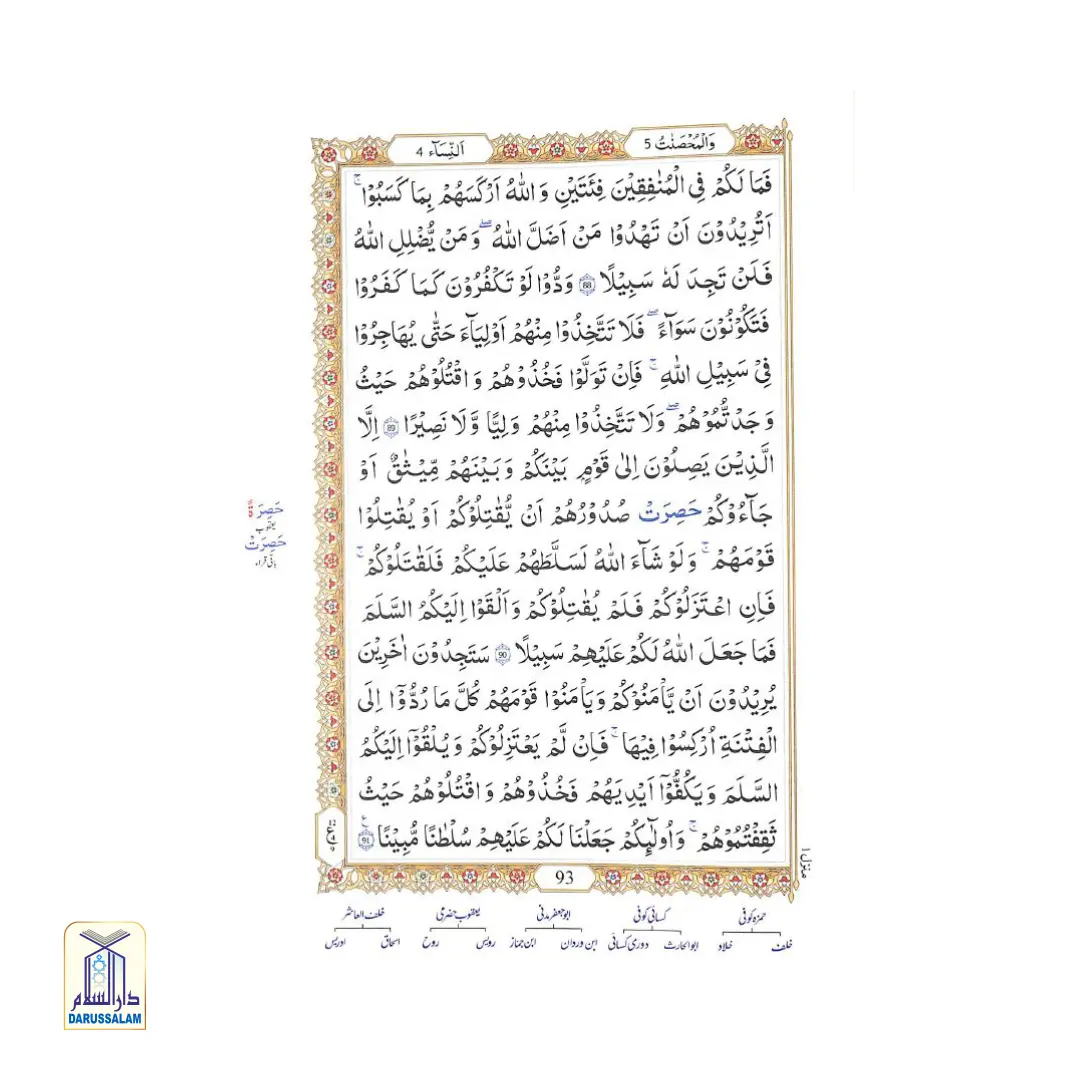 وَالْمُحْصَنٰتُ 5
اَلنِّسَآء 4
فَمَا لَكُمْ فِی الْمُنٰفِقِیْنَ فِئَتَیْنِ وَ اللّٰهُ اَرْكَسَهُمْ بِمَا كَسَبُوْا ؕ
اَتُرِیْدُوْنَ اَنْ تَهْدُوْا مَنْ اَضَلَّ اللّٰهُ ؕ وَ مَنْ یُّضْلِلِ اللّٰهُ
فَلَنْ تَجِدَ لَهٗ سَبِیْلًا 88 وَدُّوْا لَوْ تَكْفُرُوْنَ كَمَا كَفَرُوْا
فَتَكُوْنُوْنَ سَوَآءً ۖ فَلَا تَتَّخِذُوْا مِنْهُمْ اَوْلِیَآءَ حَتّٰی یُهَاجِرُوْا
فِیْ سَبِیْلِ اللّٰهِ ۚ فَاِنْ تَوَلَّوْا فَخُذُوْهُمْ وَ اقْتُلُوْهُمْ حَیْثُ
وَجَدْتُّمُوْهُمْ ۖ وَلَا تَتَّخِذُوْا مِنْهُمْ وَلِیًّا وَّلَا نَصِیْرًا 89 اِلَّا
الَّذِیْنَ یَصِلُوْنَ اِلٰی قَوْمٍ بَیْنَكُمْ وَ بَیْنَهُمْ مِّیْثٰقٌ اَوْ
جَآءُوْكُمْ حَصِرَتْ صُدُوْرُهُمْ اَنْ یُّقٰتِلُوْكُمْ اَوْ یُقٰتِلُوْا
قَوْمَهُمْ ۚ وَلَوْ شَآءَ اللّٰهُ لَسَلَّطَهُمْ عَلَیْكُمْ فَلَقٰتَلُوْكُمْ ۚ
فَاِنِ اعْتَزَلُوْكُمْ فَلَمْ یُقٰتِلُوْكُمْ وَ اَلْقَوْا اِلَیْكُمُ السَّلَمَ
فَمَا جَعَلَ اللّٰهُ لَكُمْ عَلَیْهِمْ سَبِیْلًا 90 سَتَجِدُوْنَ اٰخَرِیْنَ
یُرِیْدُوْنَ اَنْ یَّاْمَنُوْكُمْ وَ یَاْمَنُوْا قَوْمَهُمْ كُلَّ مَا رُدُّوْۤا اِلَی
الْفِتْنَةِ اُرْكِسُوْا فِیْهَا ۚ فَاِنْ لَّمْ یَعْتَزِلُوْكُمْ وَ یُلْقُوْۤا اِلَیْكُمُ
السَّلَمَ وَ یَكُفُّوْۤا اَیْدِیَهُمْ فَخُذُوْهُمْ وَ اقْتُلُوْهُمْ حَیْثُ
ثَقِفْتُمُوْهُمْ ۚ وَ اُولٰٓئِكُمْ جَعَلْنَا لَكُمْ عَلَیْهِمْ سُلْطٰنًا مُّبِیْنًا 91
حَصِرَةً
یعقوب
حَصِرَتْ
باقی قراء
منزل ۱
93
حمزہ کوفی
کسائی کوفی
ابوجعفر مدنی
یعقوب حضرمی
خلف العاشر
خلف
خلاد
ابوالحارث
دوری کسائی
ابن وردان
ابن جماز
رویس
روح
اسحاق
ادریس
دارالسلام
DARUSSALAM